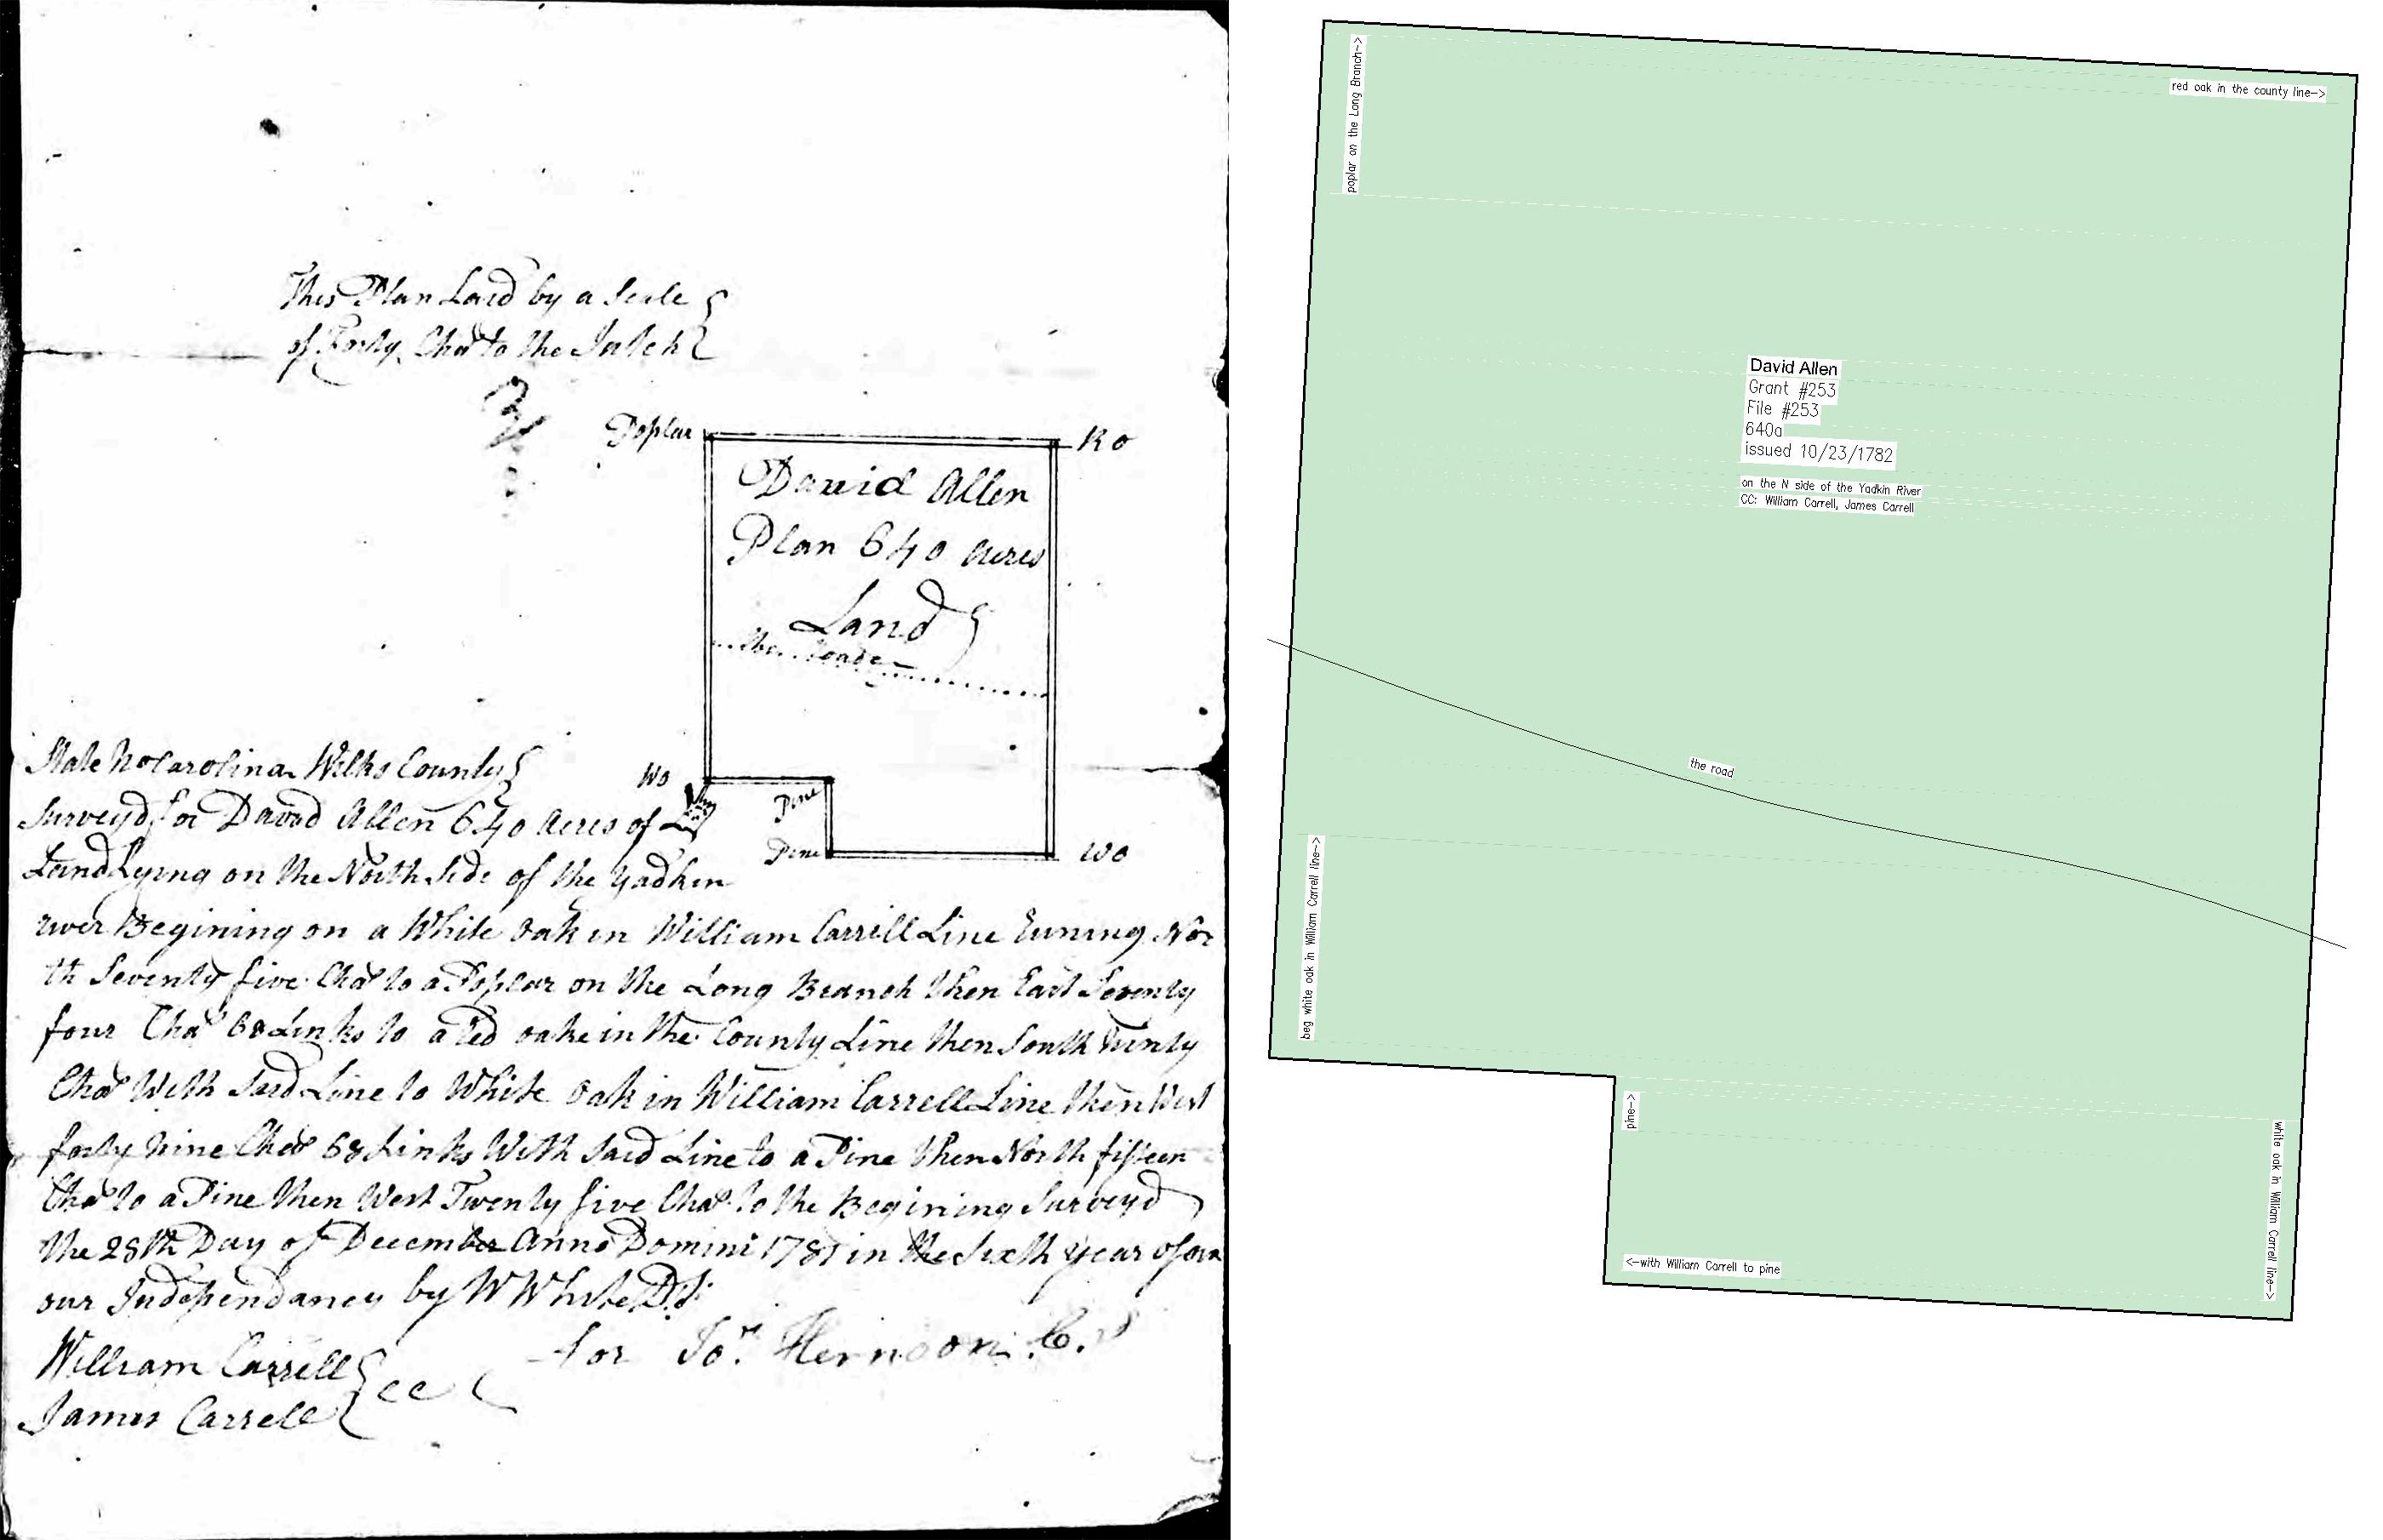 This Plan Laid by a Scale
of Forty Chas to the Intch
Poplar
R o
David Allen
Plan 640 acres
Land
the Roade
Wo
Pine
Pine
wo
State No Carolina Wilks County
Surveyd for David Allen 640 acres of
Land Lying on the North Side of the Yadken
river Begining on a White oak in William Carrill Line Runing Nor
th Seventy five Chas to a Poplar on the Long Branch then East Seventy
four Chas 68 Links to a red oake in the County Line then South Ninty
Chas With Said Line to White oak in William Carrell Line then West
forty nine Chas 68 Links With Said Line to a Pine then North fifteen
Chas to a Pine then West Twenty five Chas to the Begining Surveyd
the 28th Day of December Anno Domini 1781 in the Sixth year of
our Independancy by W White D.S.
for Jo. Herndon C.S
William Carrell
James Carrell
CC
poplar on the Long Branch->
red oak in the county line->
David Allen
Grant #253
File #253
640a
issued 10/23/1782
on the N side of the Yadkin River
CC: William Carrell, James Carrell
the road
beg white oak in William Carrell line->
pine->
<-with William Carrell to pine
white oak in William Carrell line->